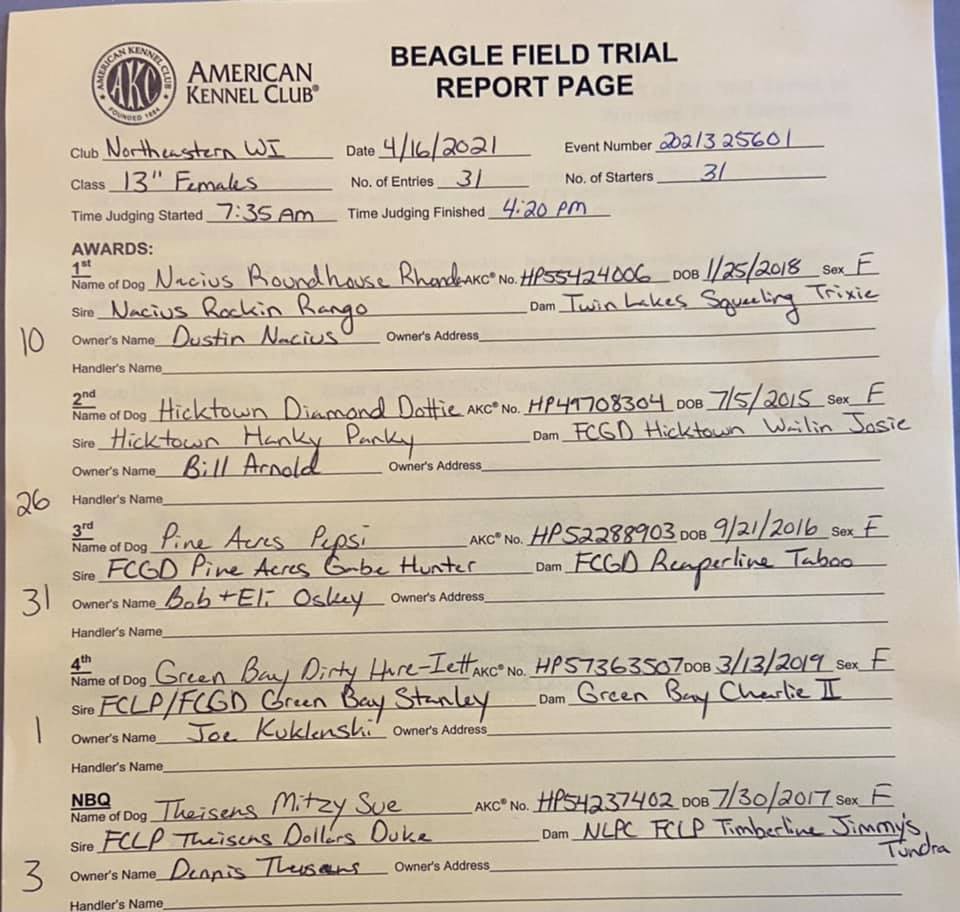 AMERICAN KENNEL CLUB
AKC
FOUNDED 1884
AMERICAN
KENNEL CLUB®
BEAGLE FIELD TRIAL
REPORT PAGE
Club Northeastern WI Date 4/16/2021 Event Number 2021325601
Class 13" Females No. of Entries 31 No. of Starters 31
Time Judging Started 7:35 AM Time Judging Finished 4:20 PM
AWARDS:
1st
Name of Dog Nacius Roundhouse Rhonda AKC® No. HP55424006 DOB 1/25/2018 Sex F
Sire Nacius Rockin Rango Dam Twin Lakes Squeeling Trixie
10 Owner's Name Dustin Nacius Owner's Address
Handler's Name
2nd
Name of Dog Hicktown Diamond Dottie AKC® No. HP49708304 DOB 7/5/2015 Sex F
Sire Hicktown Hanky Panky Dam FCGD Hicktown Wailin Josie
Owner's Name Bill Arnold Owner's Address
26 Handler's Name
3rd
Name of Dog Pine Acres Pepsi AKC® No. HP52288903 DOB 9/21/2016 Sex F
Sire FCGD Pine Acres Gabe Hunter Dam FCGD Reaperline Taboo
31 Owner's Name Bob + Eli Oskey Owner's Address
Handler's Name
4th
Name of Dog Green Bay Dirty Hare-Iett AKC® No. HP57363507 DOB 3/13/2019 Sex F
Sire FCLP/FCGD Green Bay Stanley Dam Green Bay Charlie II
1 Owner's Name Joe Kuklenski Owner's Address
Handler's Name
NBQ
Name of Dog Theisens Mitzy Sue AKC® No. HP54237402 DOB 7/30/2017 Sex F
Sire FCLP Theisens Dollars Duke Dam NLPC FCLP Timberline Jimmy's
Tundra
3 Owner's Name Dennis Theisens Owner's Address
Handler's Name